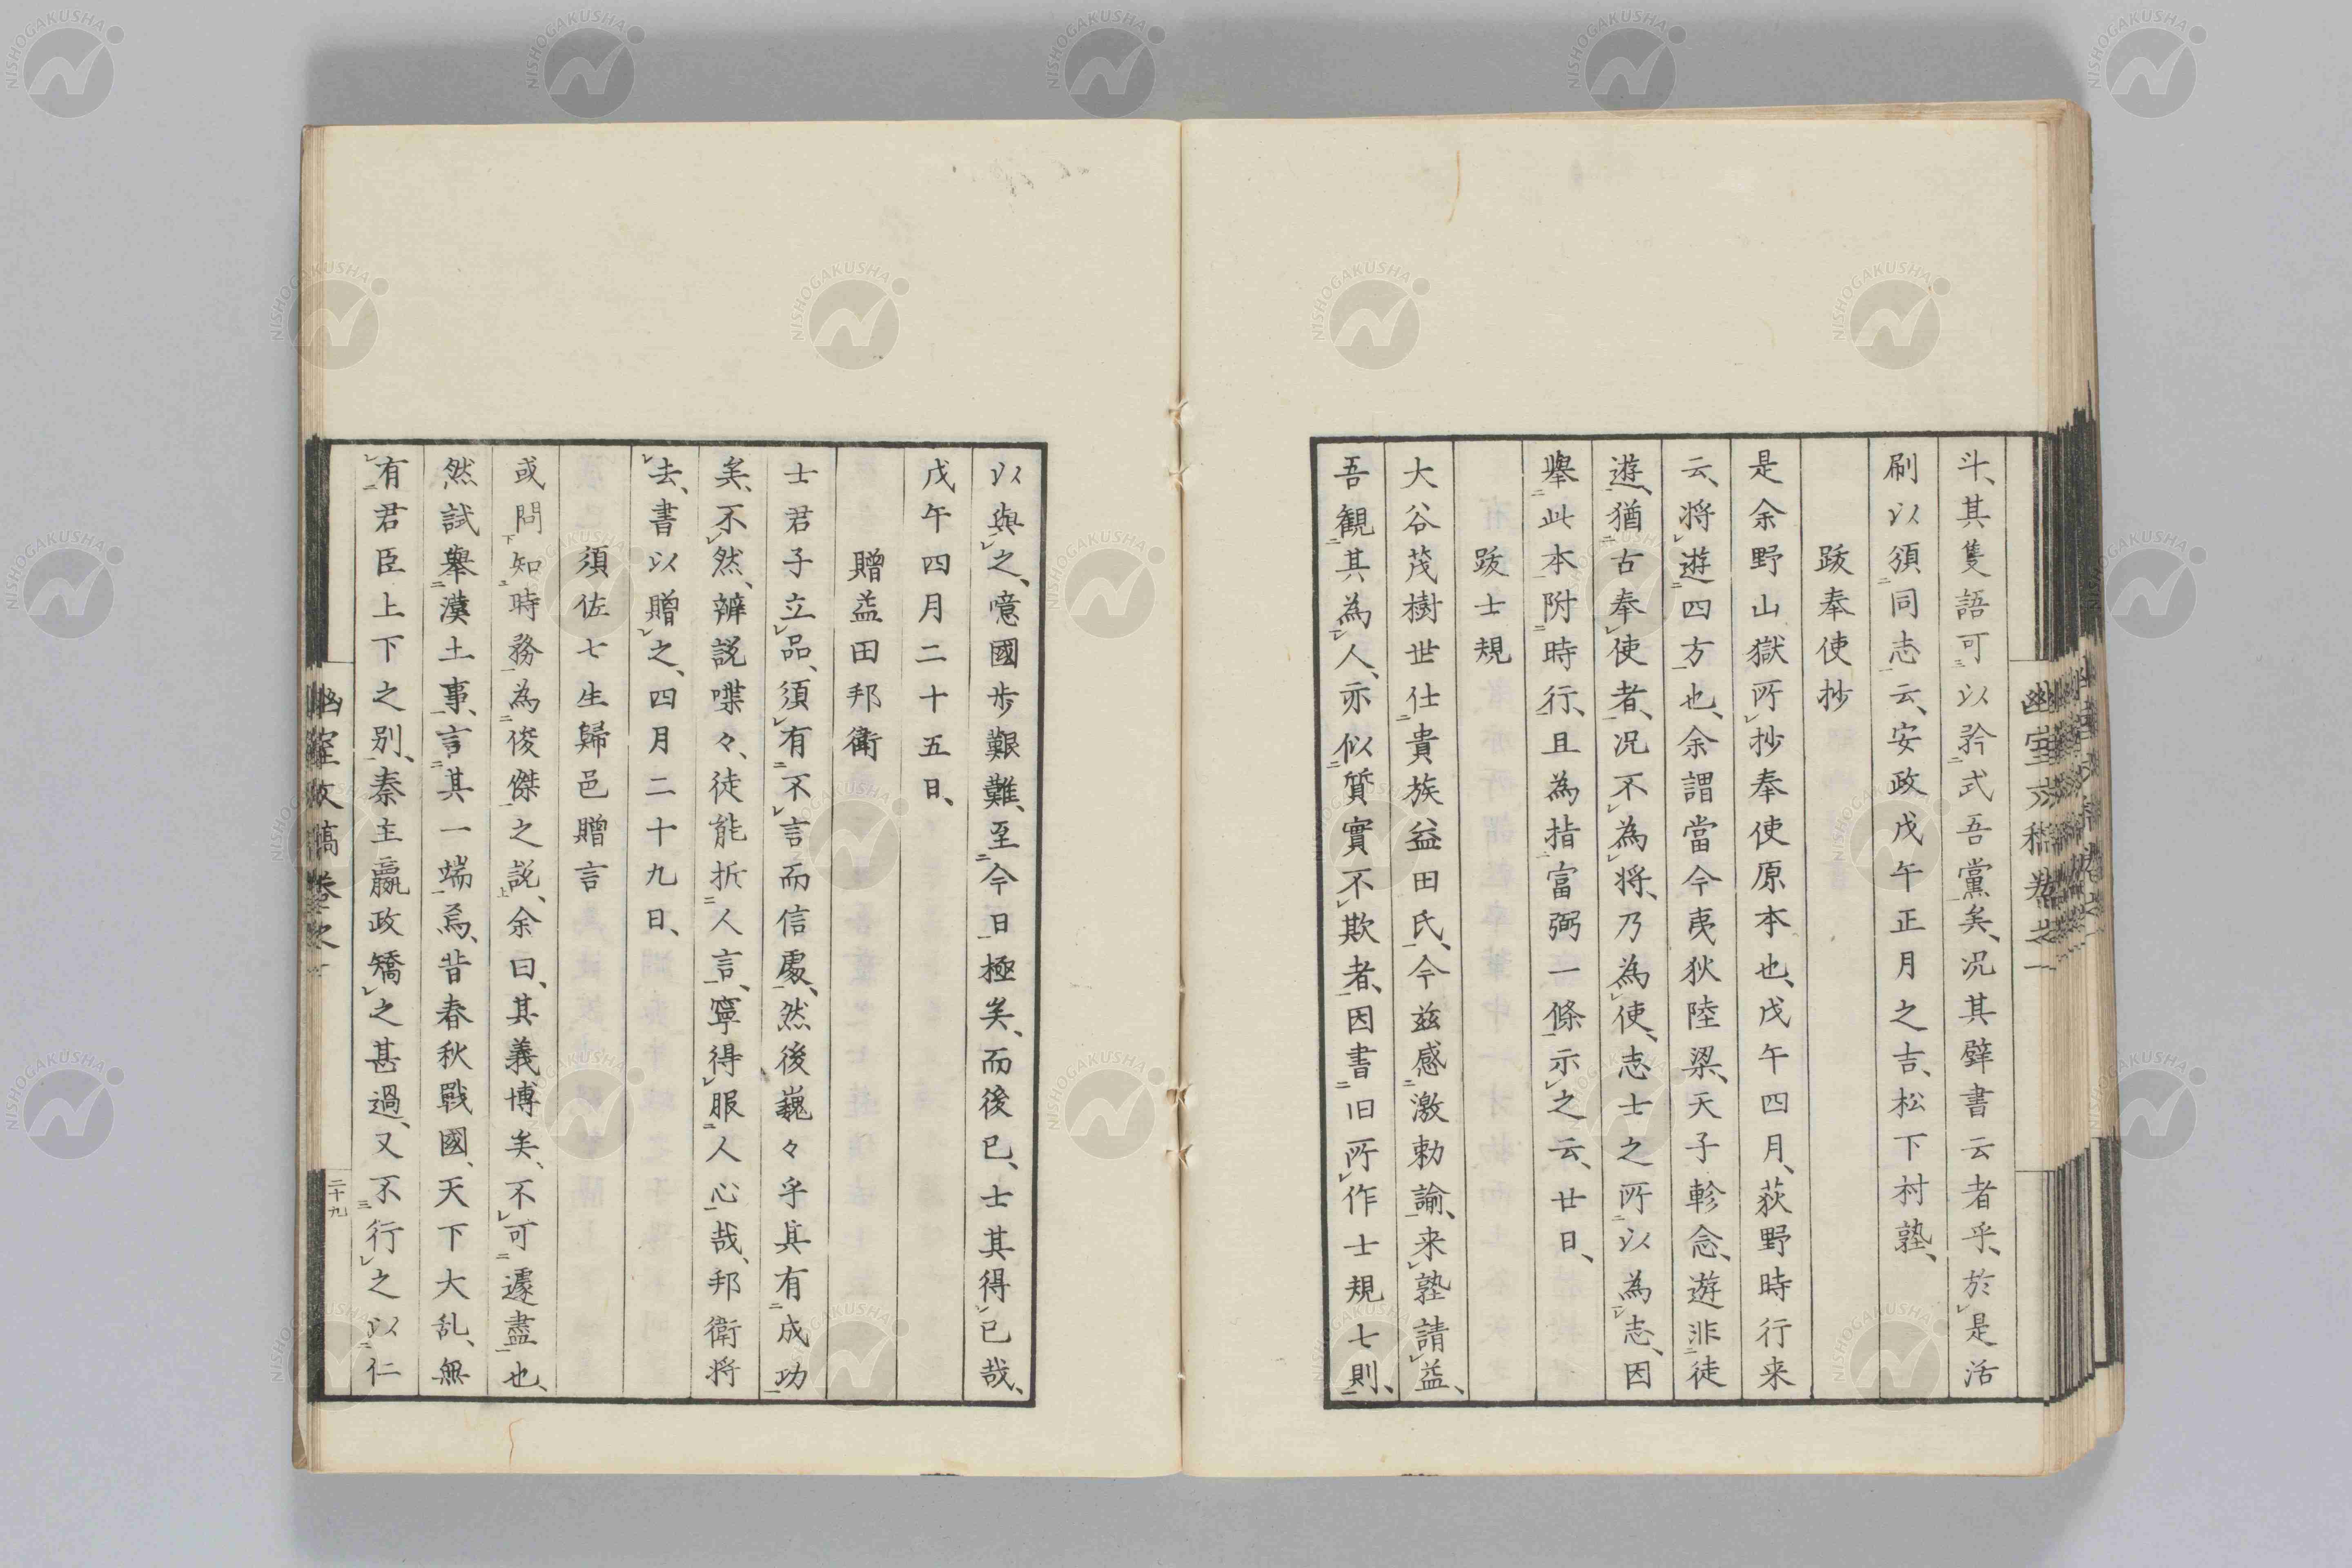 斗、其隻語可以矜式吾黨矣、况其壁書云者乎、於是活
刷以須同志云、安政戊午正月之吉、松下村塾、
跋奉使抄
是余野山獄所抄奉使原本也、戊午四月、荻野時行来
云、将遊四方也、余謂當今夷狄陸梁、天子軫念、遊非徒
遊、猶古奉使者、况不為将、乃為使、志士之所以為志、因
舉此本附時行、且為指富弼一條示之云、廿日、
跋士規
大谷茂樹世仕貴族益田氏、今茲感激勅諭、来塾請益、
吾観其為人、亦似質實不欺者、因書旧所作士規七則、
以與之、噫國歩艱難、至今日極矣、而後已、士其得已哉、
戊午四月二十五日、
贈益田邦衛
士君子立品、須有不言而信處、然後巍々乎其有成功
矣、不然、辨説喋々、徒能折人言、寧得服人心哉、邦衛将
去、書以贈之、四月二十九日、
須佐七生歸邑贈言
或問知時務為俊傑之説、余曰、其義博矣、不可遽盡也、
然試舉漢土事、言其一端焉、昔春秋戰國、天下大乱、無
有君臣上下之別、秦主嬴政矯之甚過、又不行之以仁
幽室文稿卷之一
二十九
幽室文稿卷之一
NISHOGAKUSHA